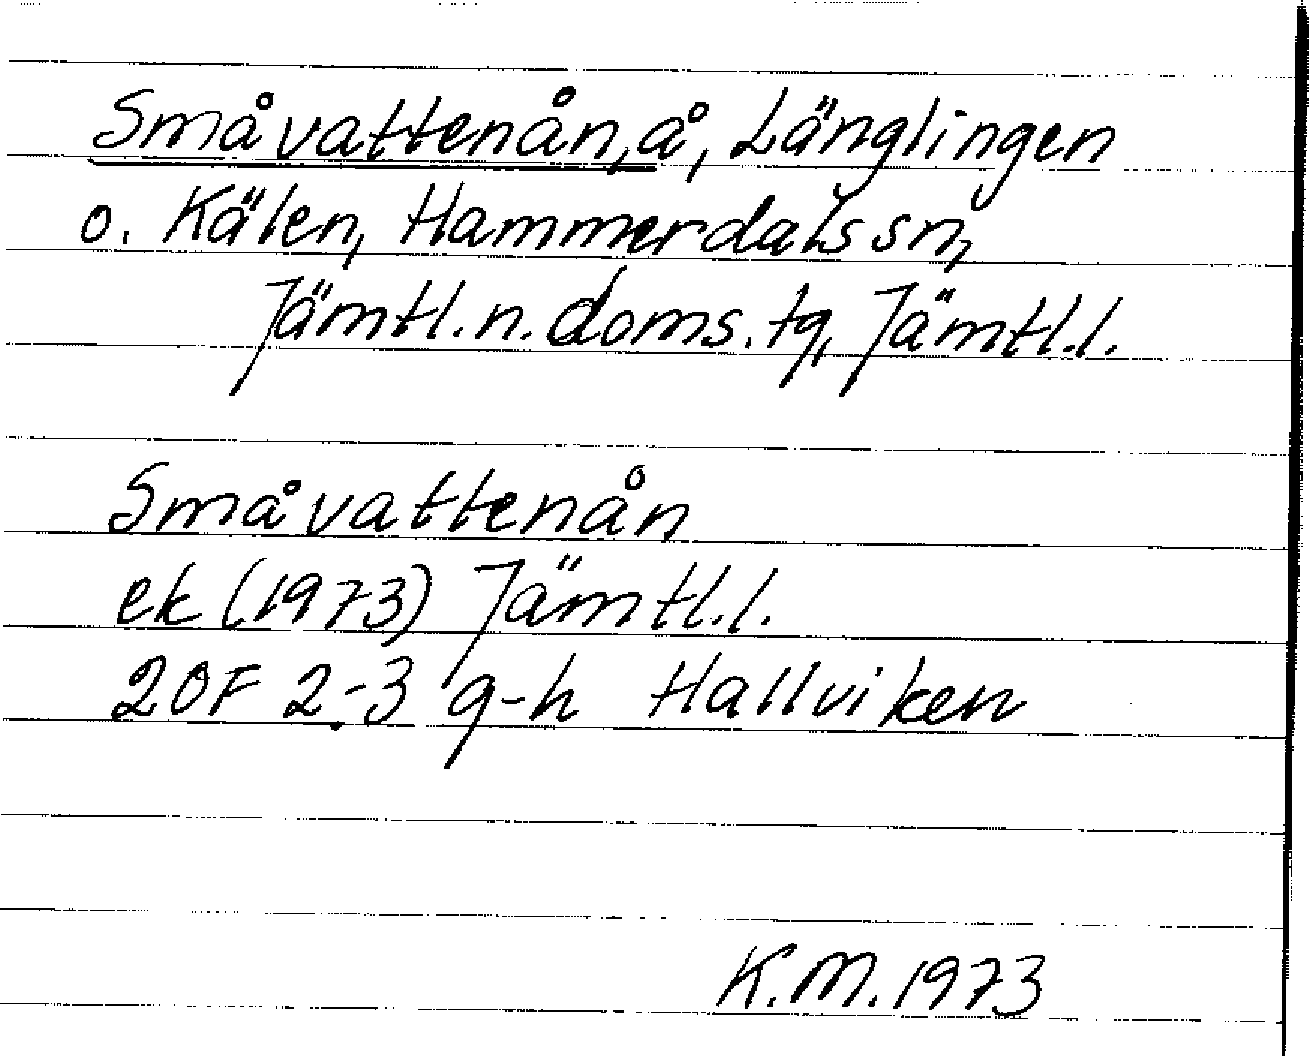 Småvattenån, å, Länglingen
o. Kälen, Hammerdals sn,
Jämtl. n. doms. tg, Jämtl. l.
Småvattenån
ek (1973) Jämtl. l.
20F 2-3 g-h Hallviken
K.M. 1973